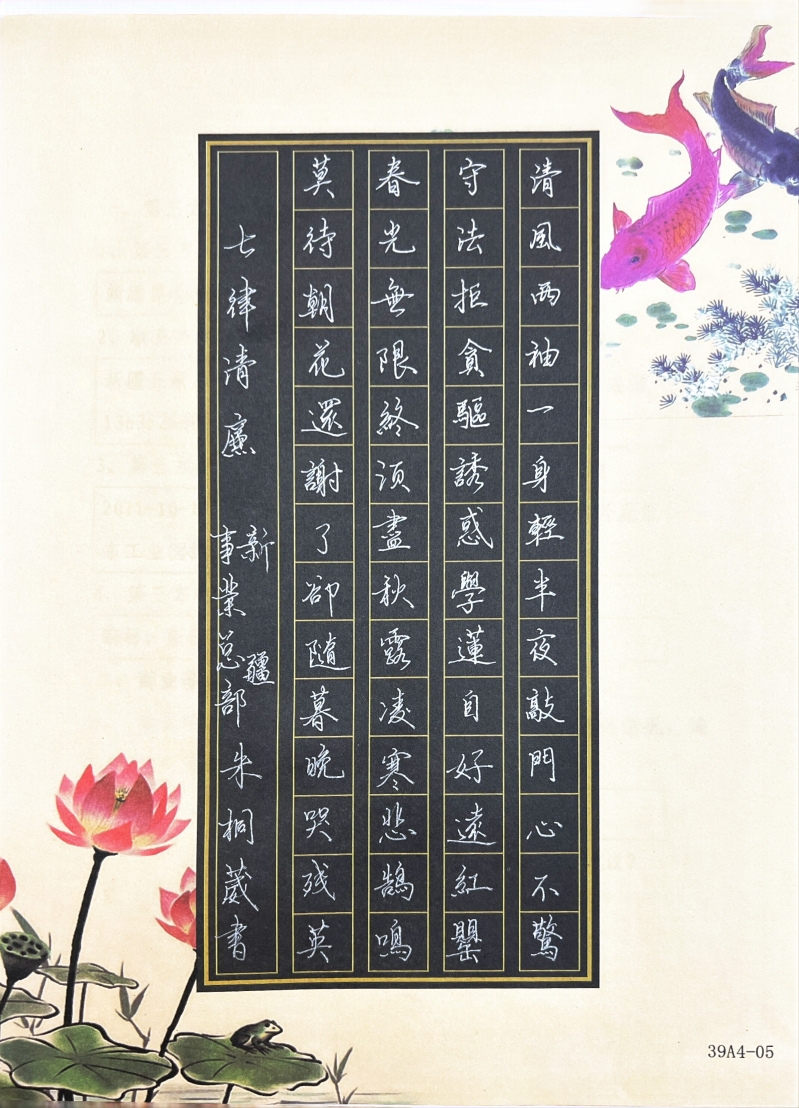 清風兩袖一身輕半夜敲門心不驚
守法拒貪驅誘惑學蓮自好遠紅罌
春光無限終須盡秋露凌寒悲鵠鳴
莫待朝花還謝了卻隨暮晚哭残英
七律清廉 新疆事業总部朱桐葳书
39A4-05